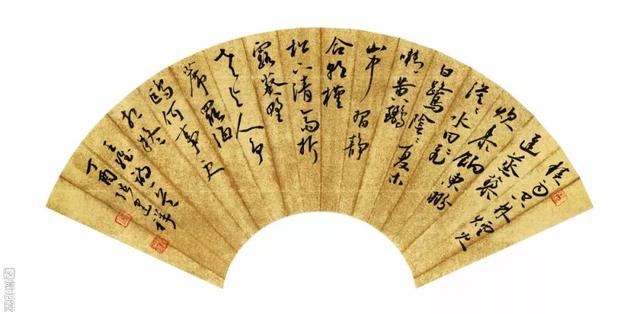 積雨空林煙火
遲蒸藜
炊黍餉東菑
漠漠水田飛
白鷺陰陰夏木
囀黃鸝
山中習靜
觀朝槿
松下清齋折
露葵野
老與人爭
席罷海
鷗何事更
相疑
王維詩一首
丁酉